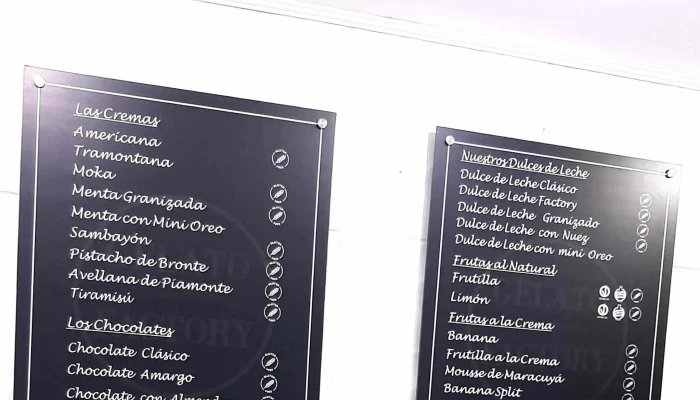 Las Cremas
Americana
Tramontana
Moka
Menta Granizada
Menta con Mini Oreo
Sambayón
Pistacho de Bronte
Avellana de Piamonte
Tiramisú
Los Chocolates
Chocolate Clásico
Chocolate Amargo
Chocolate con Almend
Nuestros Dulces de Leche
Dulce de Leche Clásico
Dulce de Leche Factory
Dulce de Leche Granizado
Dulce de Leche con Nuez
Dulce de Leche con mini Oreo
Frutas al Natural
Frutilla
Limón
Frutas a la Crema
Banana
Frutilla a la Crema
Mousse de Maracuyá
Banana Split